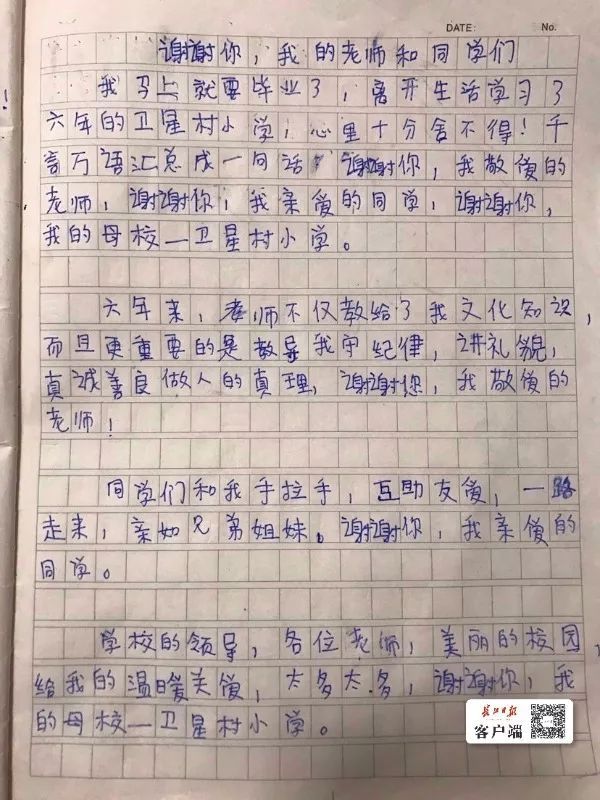 DATE: No.
谢谢你，我的老师和同学们
我马上就要毕业了，离开生活学习了
六年的卫星村小学，心里十分舍不得！千
言万语汇总成一句话：谢谢你，我敬爱的
老师，谢谢你，我亲爱的同学，谢谢你，
我的母校—卫星村小学。
六年来，老师不仅教给了我文化知识，
而且更重要的是教导我守纪律，讲礼貌，
真诚善良做人的真理，谢谢您，我敬爱的
老师！
同学们和我手拉手，互助友爱，一路
走来，亲如兄弟姐妹。谢谢你，我亲爱的
同学。
学校的领导，各位老师，美丽的校园，
给我的温暖关爱，太多太多，谢谢你，我
的母校—卫星村小学。
长江日报
客户端